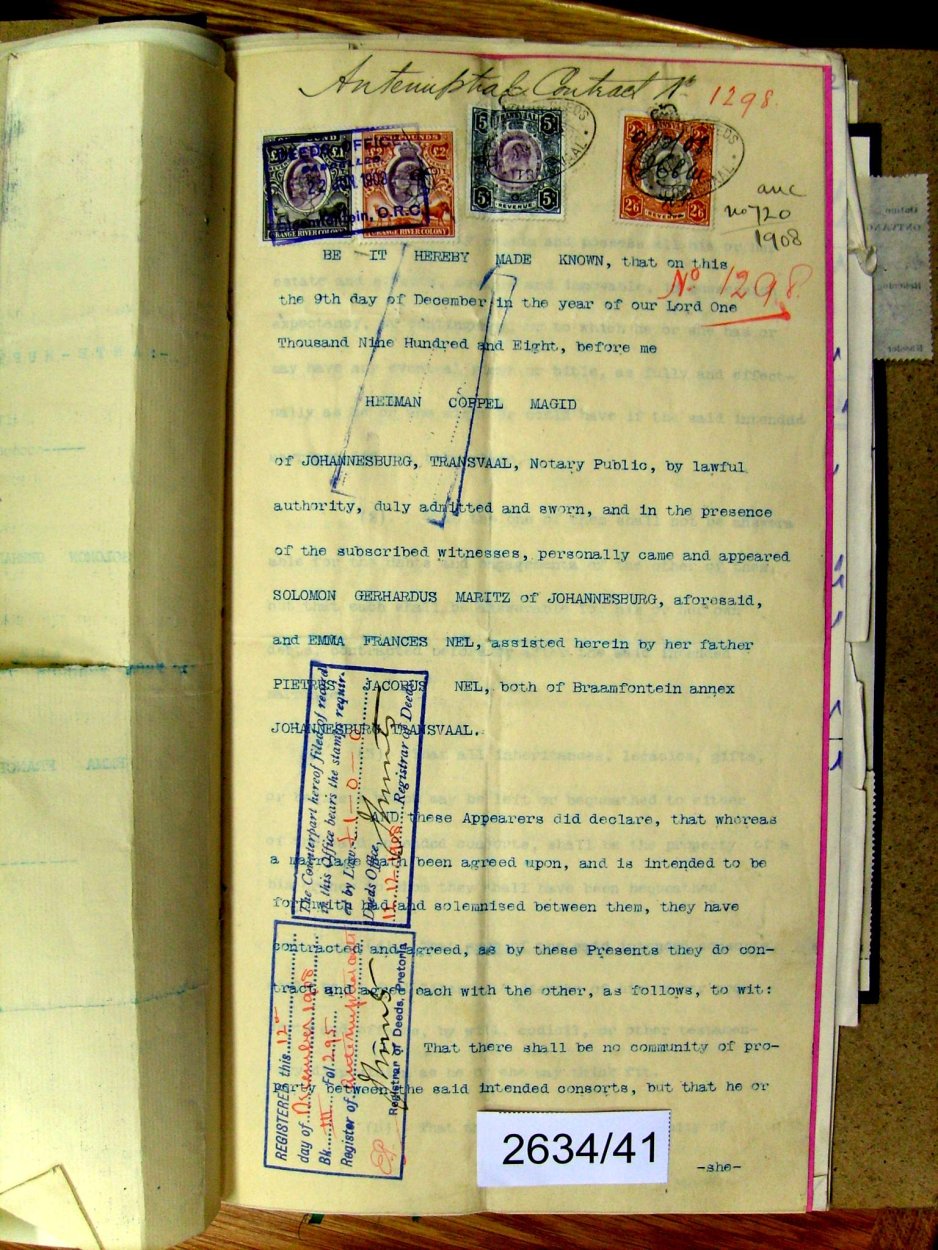 Antenuptial Contract No 1298.
£1
£2
£2
ORANGE RIVER COLONY
ORANGE RIVER COLONY
DEEDS OFFICE
1908
O.R.C.
5/ TRANSVAAL 5/
5/ REVENUE 5/
2/6
2/6 REVENUE 2/6
anc
no 720
1908
BE IT HEREBY MADE KNOWN, that on this
No 1298
the 9th day of December in the year of our Lord One
Thousand Nine Hundred and Eight, before me
HEIMAN COPPEL MAGID
of JOHANNESBURG, TRANSVAAL, Notary Public, by lawful
authority, duly admitted and sworn, and in the presence
of the subscribed witnesses, personally came and appeared
SOLOMON GERHARDUS MARITZ of JOHANNESBURG, aforesaid,
and EMMA FRANCES NEL, assisted herein by her father
PIETRUS JACOBUS NEL, both of Braamfontein annex
JOHANNESBURG, TRANSVAAL.
AND these Appearers did declare, that whereas
a marriage hath been agreed upon, and is intended to be
forthwith had and solemnised between them, they have
contracted and agreed, as by these Presents they do con-
tract and agree each with the other, as follows, to wit:
That there shall be no community of pro-
perty between the said intended consorts, but that he or
-she-
The Counterpart hereof filed of record
in this Office bears the stamp requir-
ed by Law. £1-0-0
Deeds Office,
12.12.1908 Registrar of Deeds
REGISTERED this 12
day of December 1908
Bk. III Fol. 295
Register of Antenuptial
Registrar of Deeds, Pretoria
2634/41